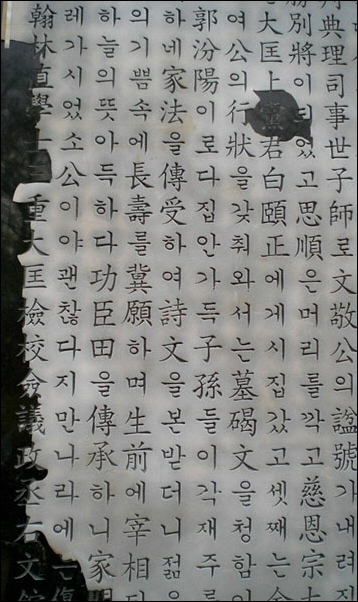 典理司事世子師로文敬公의謚號가내려
別將이되었고思順은머리를깍고慈恩宗
大匡上黨君白頤正에게시집갔고셋째는
여公의行狀을갖춰와서는墓碣文을청함
郭汾陽이로다집안가득子孫들이각재주를
하네家法을傳受하여詩文을본받더니젊을
의기쁨속에長壽를冀願하며生前에宰相되
하늘의뜻아득하다功臣田을傳承하니家
레가시었소公이야괜찮다지만나라에는傷
翰林直學士 重大匡檢校僉議政丞右文館